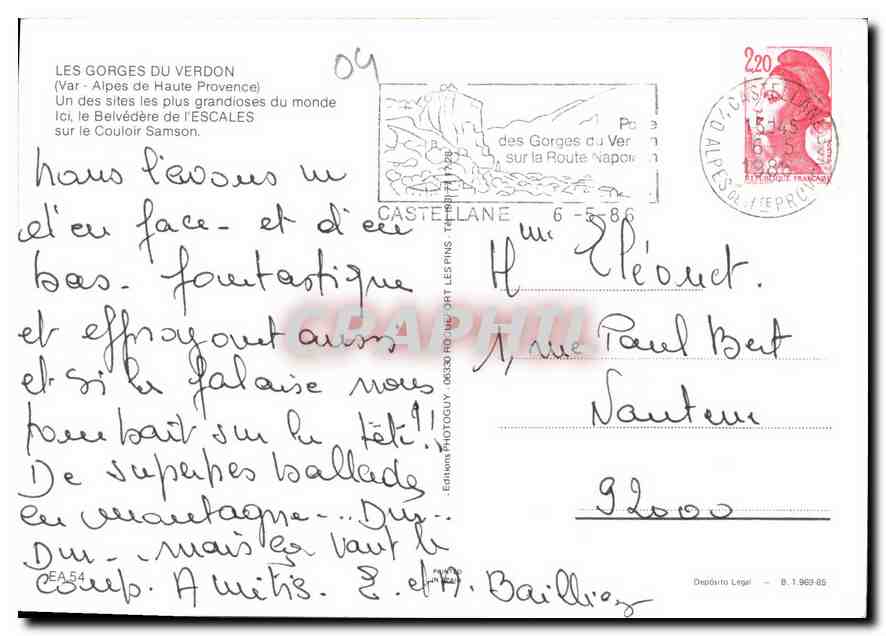 LES GORGES DU VERDON
(Var - Alpes de Haute Provence)
Un des sites les plus grandioses du monde
Ici, le Belvédère de l'ESCALES
sur le Couloir Samson.
04
des Gorges du Ver n
sur la Route Napol n
CASTELLANE 6-5-86
2,20
CASTELLANE
15H45
6-5
1986
D'ALPES DE HTE PROVCE
REPUBLIQUE FRANÇAISE
nous l'avons vu
d'en face - et d'en
bas - fantastique
et effrayant aussi
et si la falaise nous
tombait sur la tête!!
De superbes ballades
en montagne -.. Dur -..
Dur -. mais ça vaut le
coup. Amitiés. E. et A. Bailliez
EA.54
- Editions PHOTOGUY - 06330 ROQUEFORT LES PINS - Tél. (93) 77
PRINTED
IN SPAIN
Mme Eléouet.
1, rue Paul Bert
Nanterre
92000
Depósito Legal - B. 1.969-85
CPAPHIL